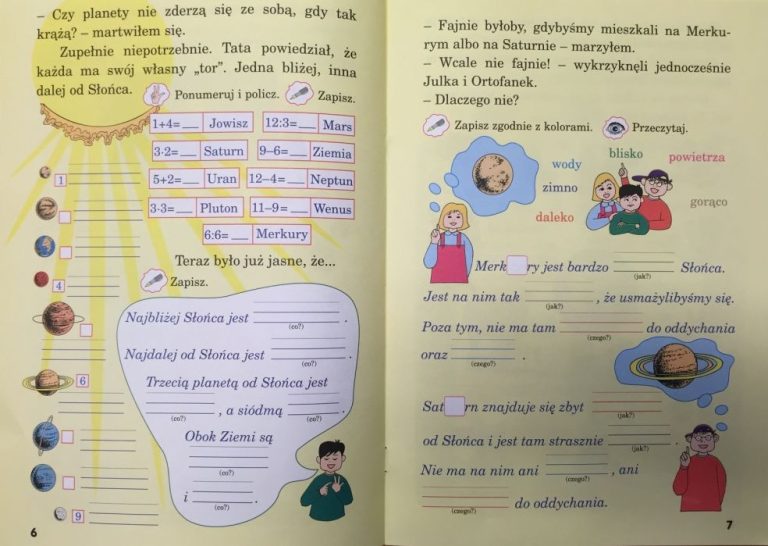 – Czy planety nie zderzą się ze sobą, gdy tak
krążą? – martwiłem się.
Zupełnie niepotrzebnie. Tata powiedział, że
każda ma swój własny „tor". Jedna bliżej, inna
dalej od Słońca.
Ponumeruj i policz. Zapisz.
1+4=___ Jowisz 12:3=___ Mars
3·2=___ Saturn 9–6=___ Ziemia
5+2=___ Uran 12–4=___ Neptun
3·3=___ Pluton 11–9=___ Wenus
6:6=___ Merkury
1
4
6
9
Teraz było już jasne, że...
Zapisz.
Najbliżej Słońca jest .
(co?)
Najdalej od Słońca jest .
(co?)
Trzecią planetą od Słońca jest
, a siódmą .
(co?) (co?)
Obok Ziemi są
(co?)
i .
(co?)
6
– Fajnie byłoby, gdybyśmy mieszkali na Merku-
rym albo na Saturnie – marzyłem.
– Wcale nie fajnie! – wykrzyknęli jednocześnie
Julka i Ortofanek.
– Dlaczego nie?
Zapisz zgodnie z kolorami. Przeczytaj.
wody blisko powietrza
zimno
daleko gorąco
Merk ry jest bardzo Słońca.
(jak?)
Jest na nim tak , że usmażylibyśmy się.
(jak?)
Poza tym, nie ma tam do oddychania
(czego?)
oraz .
(czego?)
Sat rn znajduje się zbyt
(jak?)
od Słońca i jest tam strasznie .
(jak?)
Nie ma na nim ani , ani
(czego?)
do oddychania.
(czego?)
7